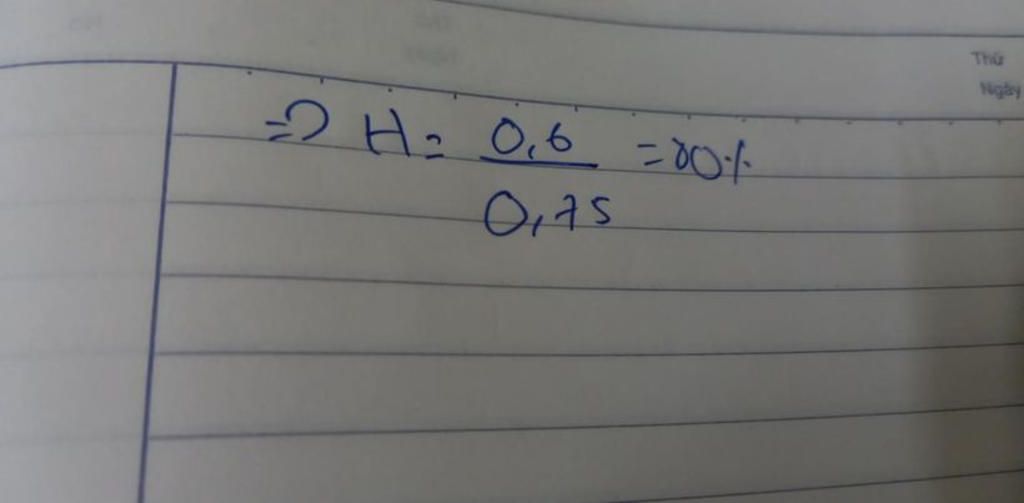 Thứ
Ngày
=> H = 0,6 / 0,75 = 80%